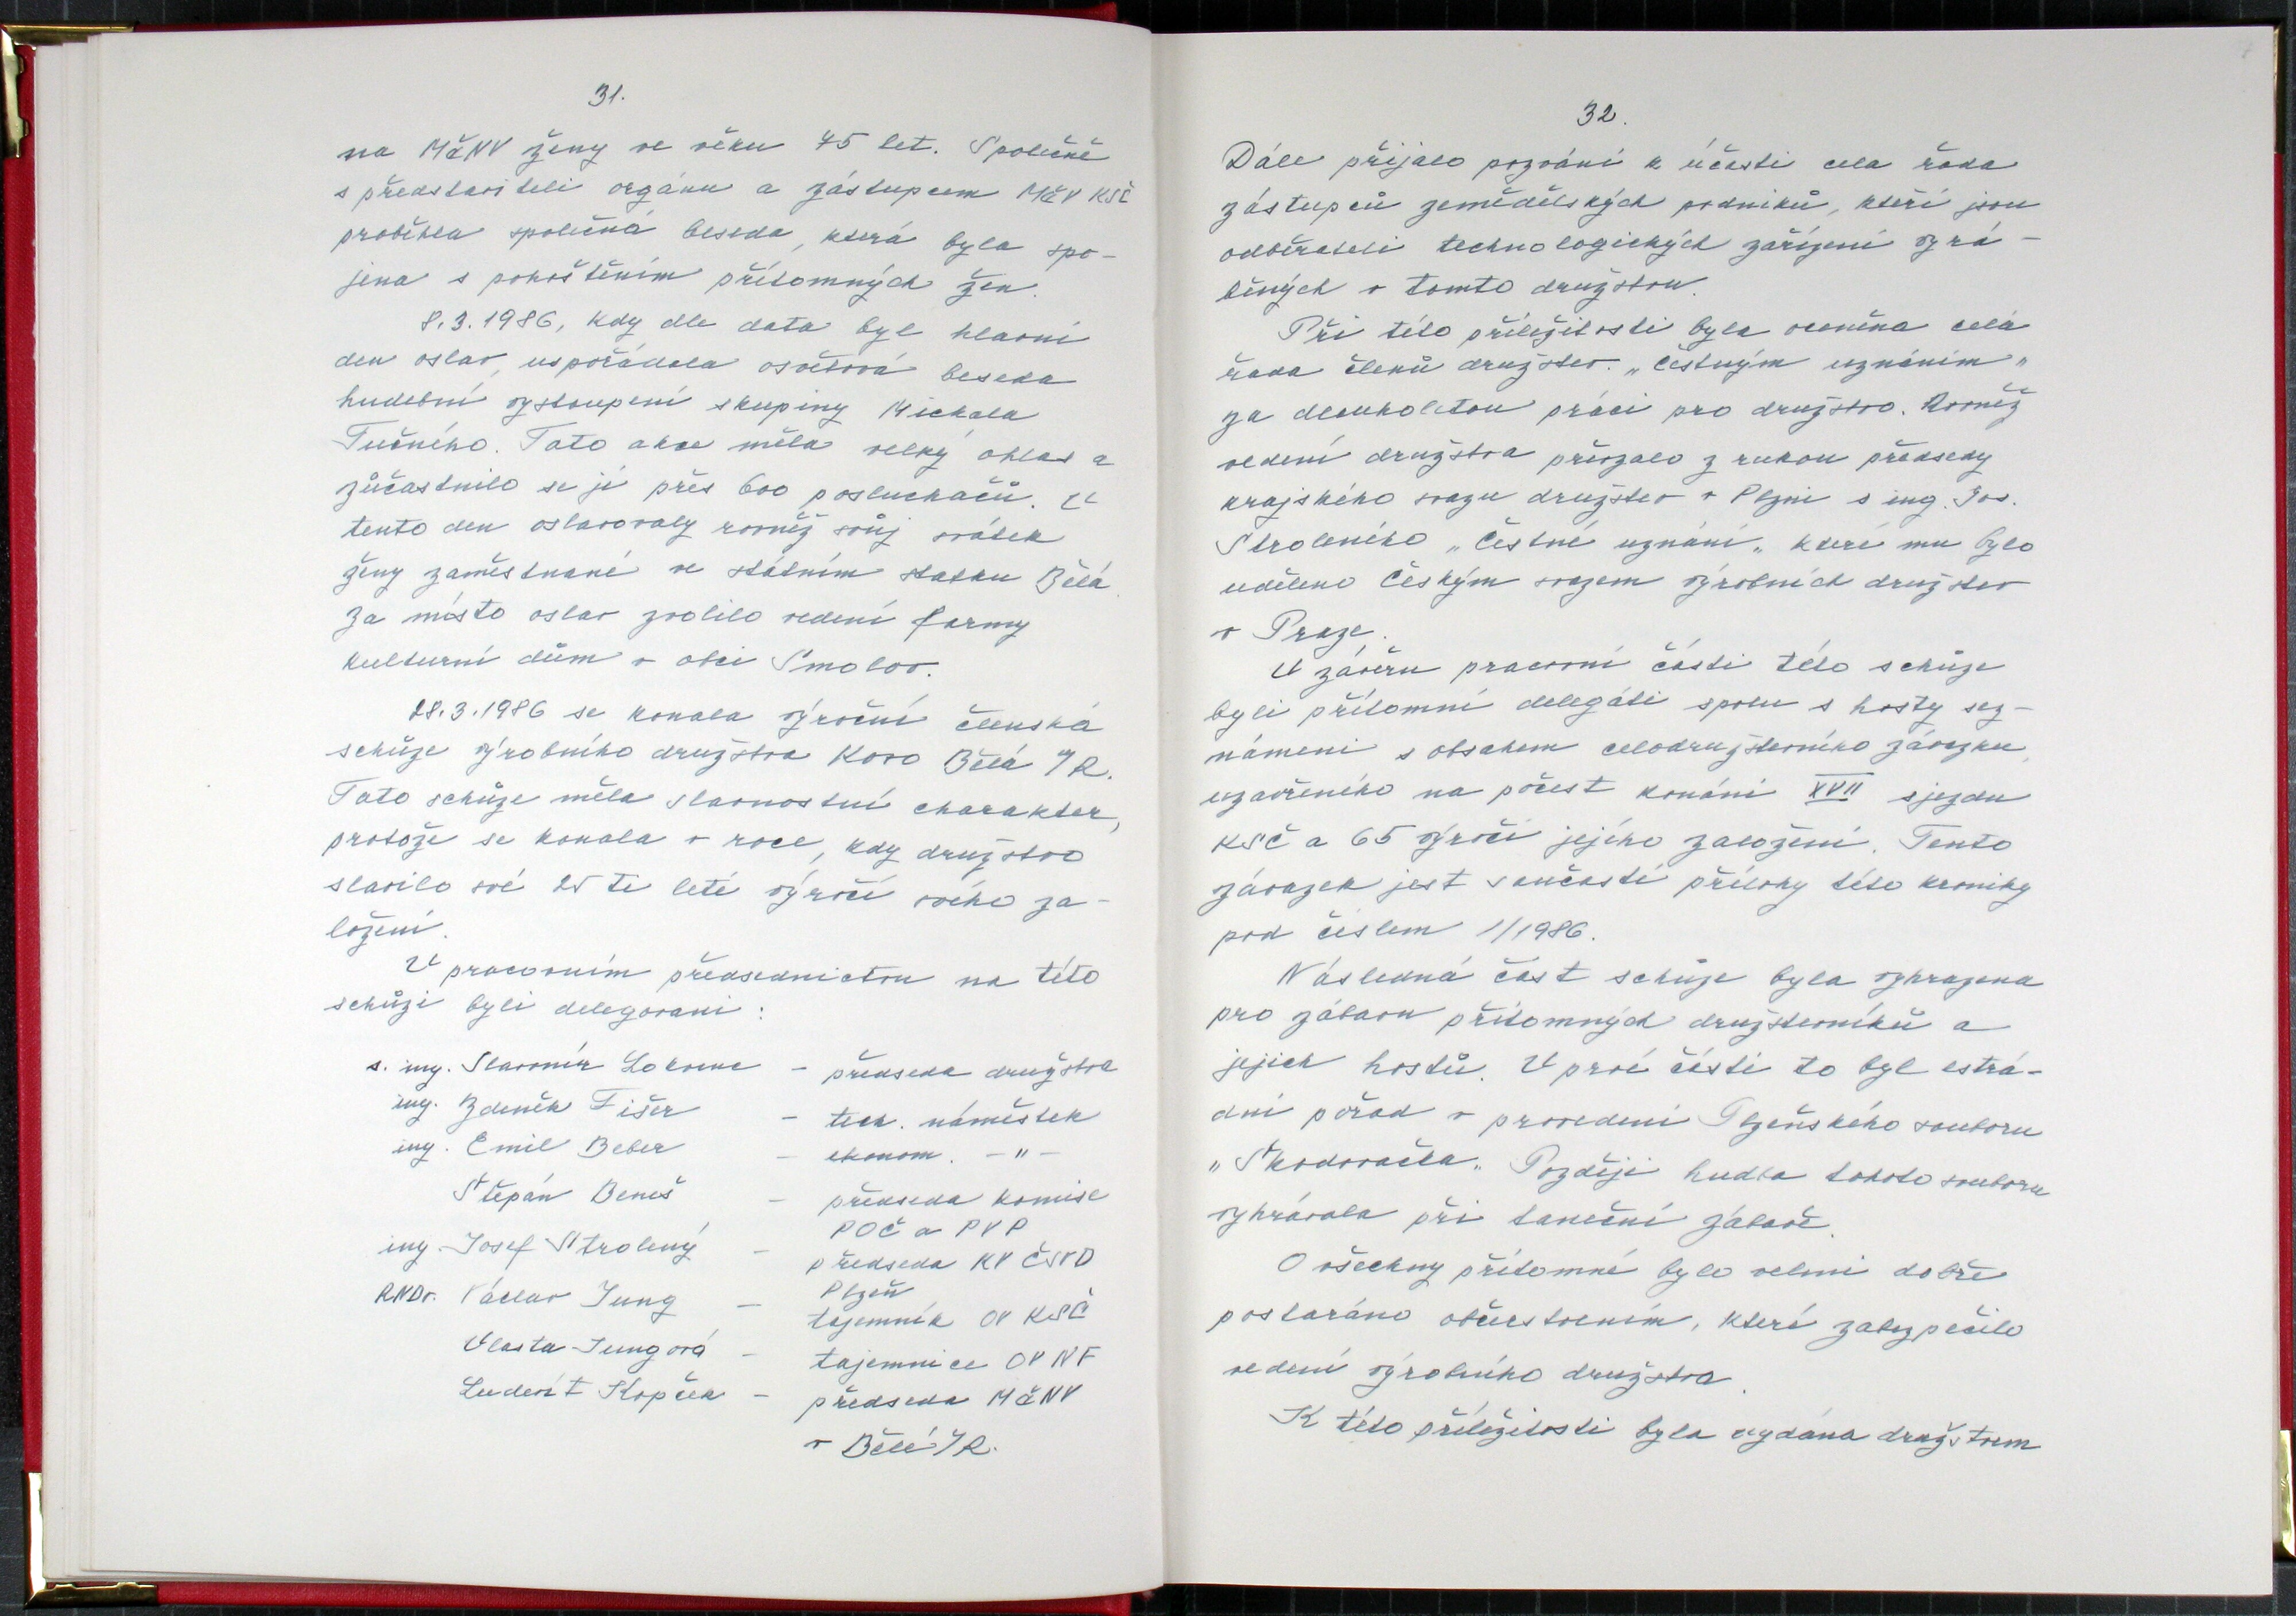 31.
na MěNV ženy ve věku 75 let. Společně
s představiteli orgánu a zástupcem MěV KSČ
proběhla společná beseda, která byla spo-
jena s pohoštěním přítomných žen.
8.3.1986, kdy dle data byl hlavní
den oslav, uspořádala osvětová beseda
hudební vystoupení skupiny Michala
Tučného. Tato akce měla velký ohlas a
zúčastnilo se jí přes 600 posluchačů. V
tento den oslavovaly rovněž svůj svátek
ženy zaměstnané ve státním statku Bělá
Za místo oslav zvolilo vedení farmy
kulturní dům v obci Smolov.
28.3.1986 se konala výroční členská
schůze výrobního družstva Kovo Bělá /R.
Tato schůze měla slavnostní charakter,
protože se konala v roce, kdy družstvo
slavilo své 25 ti leté výročí svého za-
ložení.
V pracovním předsednictvu na této
schůzi byli delegovani:
s. ing. Slavomír Lokvenc - předseda družstva
ing. Zdeněk Fišer - tech. náměstek
ing. Emil Beber - ekonom. - " -
Štěpán Beneš - předseda komise
POČ a PVP
ing. Josef Strolený - předseda KV ČSVD
Plzeň
RNDr. Václav Jung - tajemník OV KSČ
Vlasta Jungová - tajemnice OV NF
Ludevít Kopček - předseda MěNV
v Bělé /R.
32.
Dále přijalo pozvání k účasti cela řada
zástupců zemědělských podniků, kteří jsou
odběrateli technologických zařízení vyrá-
běných v tomto družstvu.
Při této příležitosti byla oceněna celá
řada členů družstev. „čestným uznáním"
za dlouholetou práci pro družstvo. Rovněž
vedení družstva převzalo z rukou předsedy
krajského svazu družstev v Plzni s ing. Jos.
Stroleného „Čestné uznání" které mu bylo
uděleno Českým svazem výrobních družstev
v Praze.
V závěru pracovní části této schůze
byli přítomní delegáti spolu s hosty sez-
námeni s obsahem celodružstevního závazku,
uzavřeného na počest konání XVII sjezdu
KSČ a 65 výročí jejího založení. Tento
závazek jest součastí přílohy této kroniky
pod číslem 1/1986.
Následná část schůze byla vyhrazena
pro zábavu přítomných družsterníků a
jejich hostů. V prvé části to byl estrá-
dní pořad v provedení Plzeňského souboru
„Škodovačka" Později hudba tohoto souboru
vyhrávala při taneční zábavě.
O všechny přítomné bylo velmi dobře
postaráno občerstvením, které zabezpečilo
vedení výrobního družstva.
K této příležitosti byla vydána družstvem